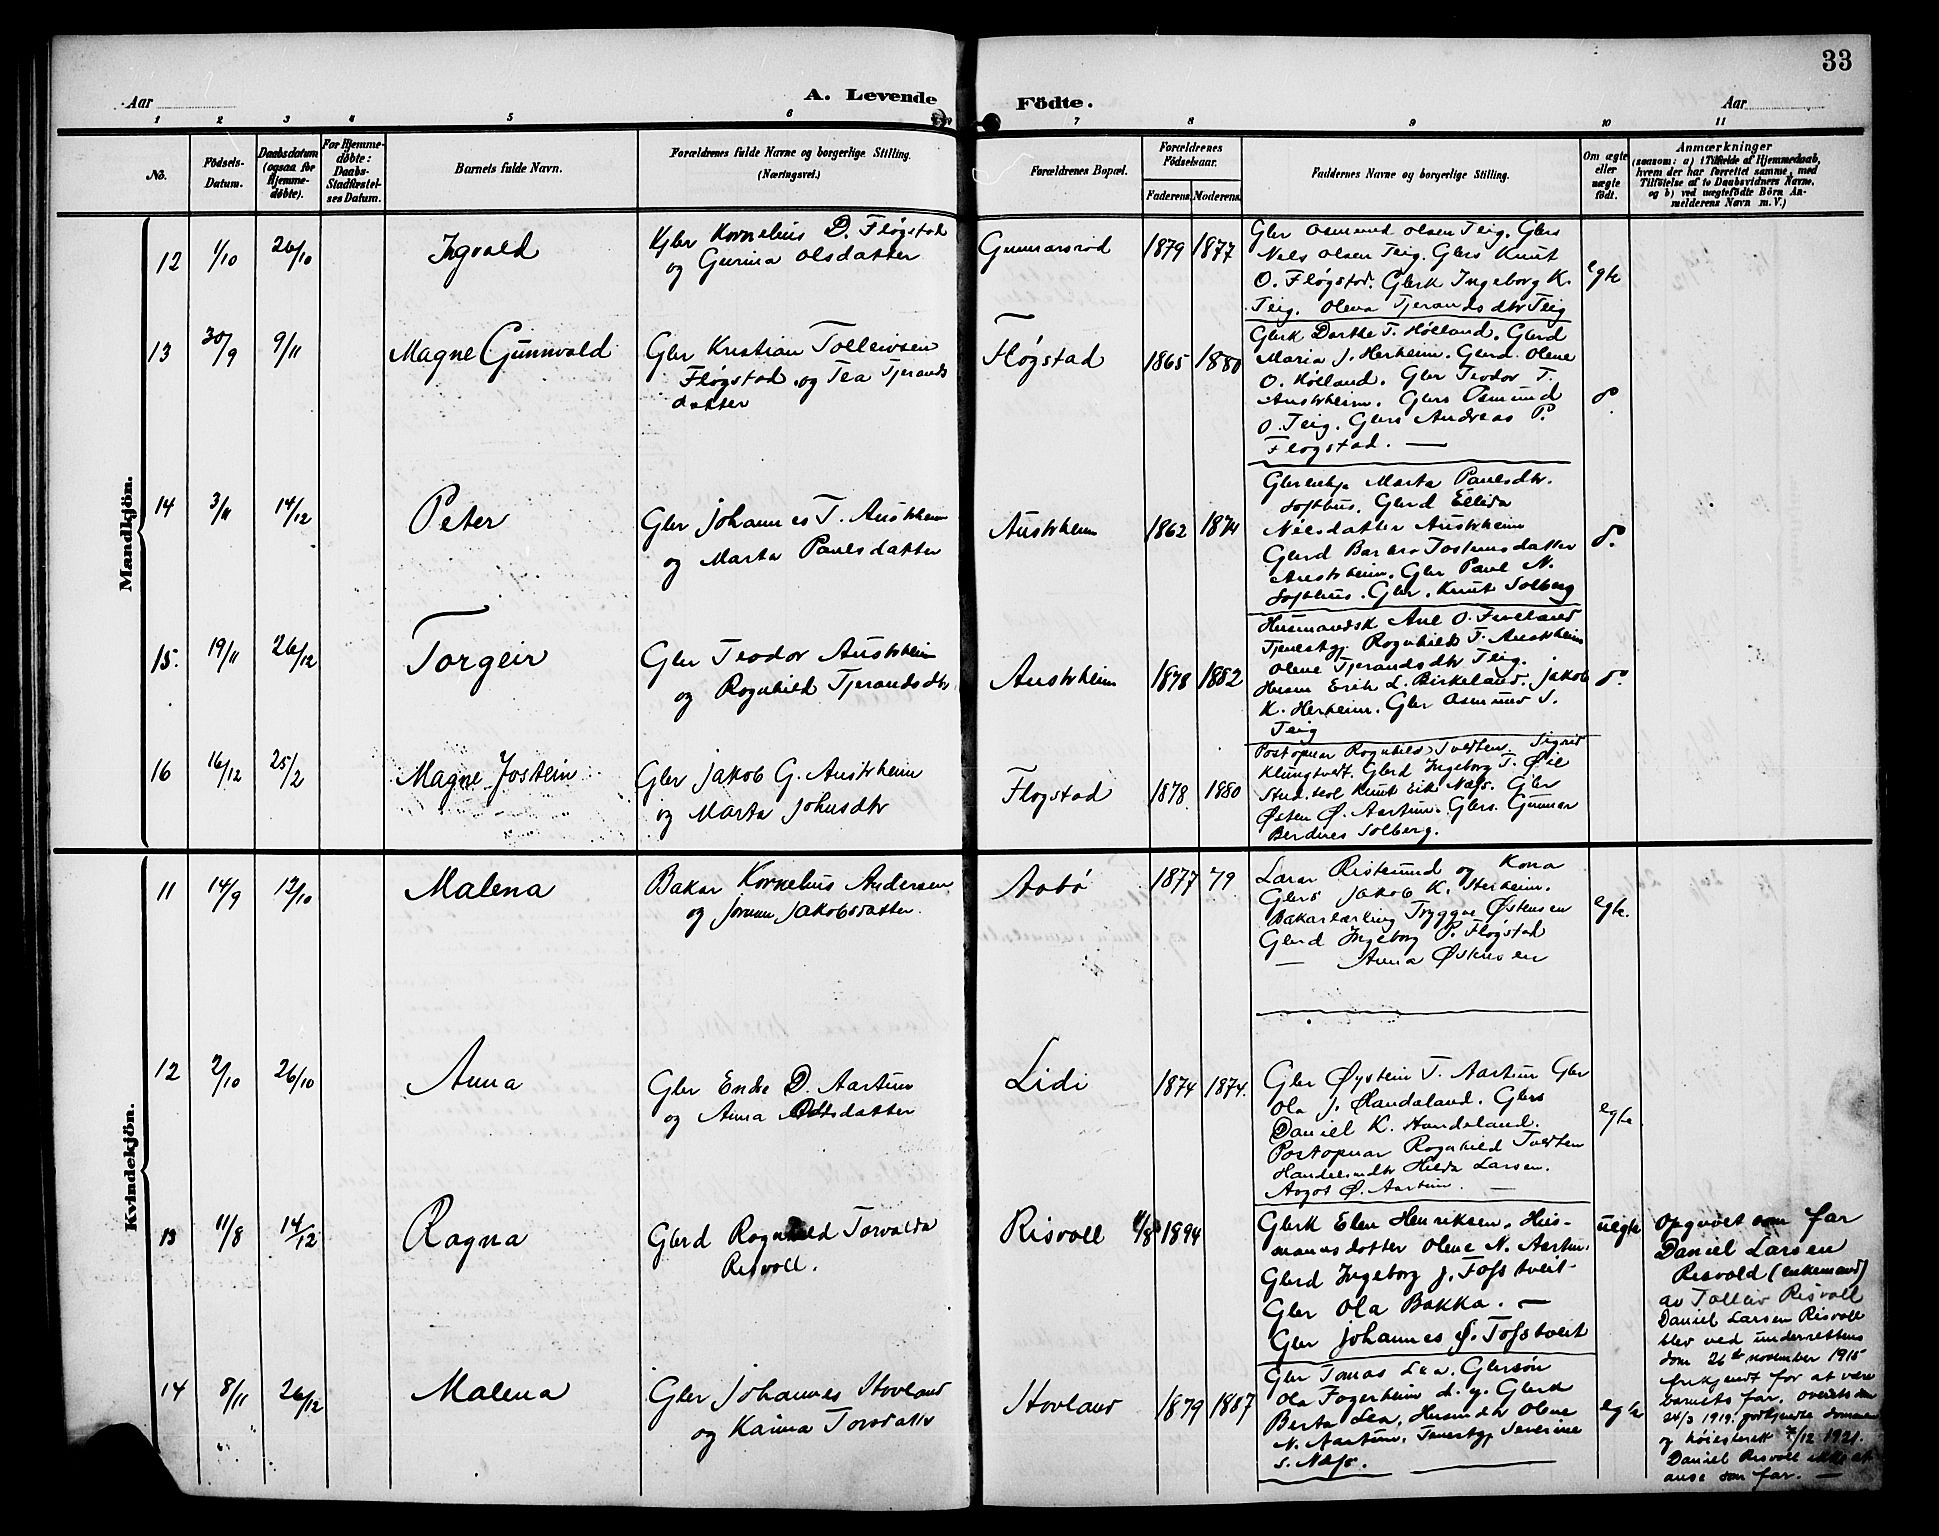 33
Aar
A. Levende Födte.
Aar
1 2 3 4 5 6 7 8 9 10 11
No.
Fødsels-
Datum.
Daabsdatum
(ogsaa for
Hjemme-
døbte).
For Hjemme-
døbte:
Daabs-
Stadfæstel-
ses Datum.
Barnets fulde Navn.
Forældrenes fulde Navne og borgerlige Stilling.
(Næringsvei.)
Forældrenes Bopæl.
Forældrenes
Fødselsaar.
Faderens. Moderens.
Faddernes Navne og borgerlige Stilling.
Om ægte
eller
uægte
født.
Anmærkninger
(saasom: a) i Tilfælde af Hjemmedaab,
hvem der har forrettet samme, med
Tilføielse af to Daabsvidners Navne,
og b) ved uægtefödte Börn An-
melderens Navn m. V.)
Mandkjön.
12 1/10 26/10 Ingvald
Gbr Kornelius D. Fløgstad
og Gurina Olsdatter
Gunnarsrød 1879 1877
Gbr Osmund Olsen Teig. Gbrs
Nils Olsen Teig. Gbrs Knut
O. Fløgstad. Gbrk Ingeborg K.
Teig. Olena Tjerandsdtr Teig
egte
13 30/9 9/11 Magne Gunnvald
Gbr Kristian Tolleivsen
Fløgstad og Tea Tjerands
datter
Fløgstad 1865 1880
Gbrk Dorthe T. Hølland. Gbrd
Maria J. Herheim. Gbrd Olene
O. Hølland. Gbr Teodor T.
Austrheim. Gbrs Osmund
O. Teig. Gbrs Andreas P.
Fløgstad. —
14 3/11 14/12 Peter
Gbr Johannes T. Austrheim
og Marta Paulsdatter
Austrheim 1862 1874
Marta Paulsdtr.
Softhus. Gbrd Ellida
Nilsdatter Austrheim
Gbrd Barbro Tostensdatter
Austrheim. Gbr Paul N.
Softhus. Gbr. Knut Solberg
15. 19/11 26/12 Torgeir
Gbr Teodor Austrheim
og Rognhild Tjerandsdtr
Austrheim 1878 1882
Husmandsk Ane O.
Tjenestpj Rognhild T. Austrheim
Olene Tjerandsdtr Teig.
Husm Erik L. Birkeland. Jakob
K. Herheim. Gbr Osmund S.
Teig
16 16/12 25/2 Magne Jostein
Gbr Jakob G. Austrheim
og Marta Johnsdtr
Flogstad 1878. 1880
Postopnar Rognhild Tvedten. Sigrid
Klungtvedt. Gbrd Ingeborg T. Øie
Knut Næss. Gbr
Østen Ø. Aartun. Gbrs. Gunnar
Solberg.
Kvindekjön.
11 14/9 12/10 Malena
Bakar Kornelius Andersen
og Jorunn Jakobsdatter.
Aabö 1877 79.
Lærar Risteund og Kona
Gbrs Jakob K. Herheim.
Bakarlærling Tryggve Østensen
Gbrd Ingeborg P. Flogstad
— Anna Østensen
egte.
12 2/10 26/10 Anna
Gbr Endre D. Aartun
og Anna datter
Lidi 1874 1874.
Gbr Øystein T. Aartun Gbr
Ola J. Handeland. Gbrs
Daniel K. Handeland.
Postopnar Rognhild Tvedten
Handelsmdtr Hilda Larsen.
Aagot Ø. Aartun. —
egte.
13 11/8 14/12 Ragna
Gbrd Rognhild Torvalds
Risvoll.
Risvoll 1894
Gbrk Elen Henriksen. Hus-
mandsdatter Olene N. Aartun.
Gbrd Ingeborg J. Tofstveit-
Gbr Ola Bakka. —
Gbr Johannes Ø. Tofstveit
uegte
Opgivet som far
Daniel Larsen
Risvold (enkemand)
av Tolleiv Risvoll
Daniel Larsen Risvoll
blev ved underrettens
dom 26de november 1915
frikjendt for at være
barnets far. Overretsdom
24/3 1919. godkjendte dommen
og høiesterett 7/12 1921.
Daniel Risvoll ikke at
anse som far. —
14 8/11 26/12 Malena
Gbr Johannes Hovland
og Karina Torsdatter
Hovland 1879 1887
Gbr Tomas Lea. Gbrsön
Ola Fagerheim d. y. Gbrd
Berta Lea. Husmdtr Olene
N. Aartun. Tenestpj Severine
S. Næss. —
egte